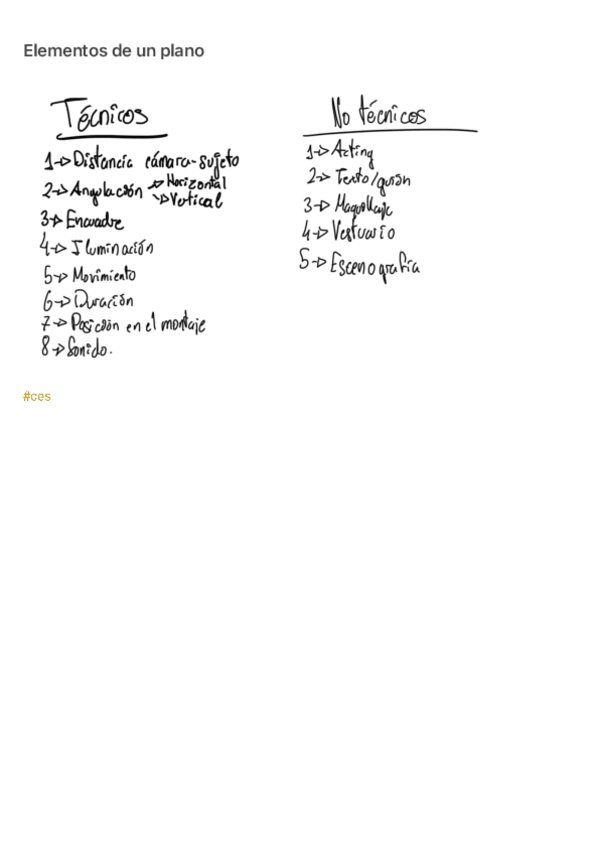 Elementos de un plano
Técnicos
1→Distancia cámara-sujeto
2→Angulación →Horizontal
→Vertical
3→Encuadre
4→Iluminación
5→Movimiento
6→Duración
7→Posición en el montaje
8→Sonido.
No técnicos
1→Acting
2→Texto/guión
3→Maquillaje
4→Vestuario
5→Escenografía
#ces